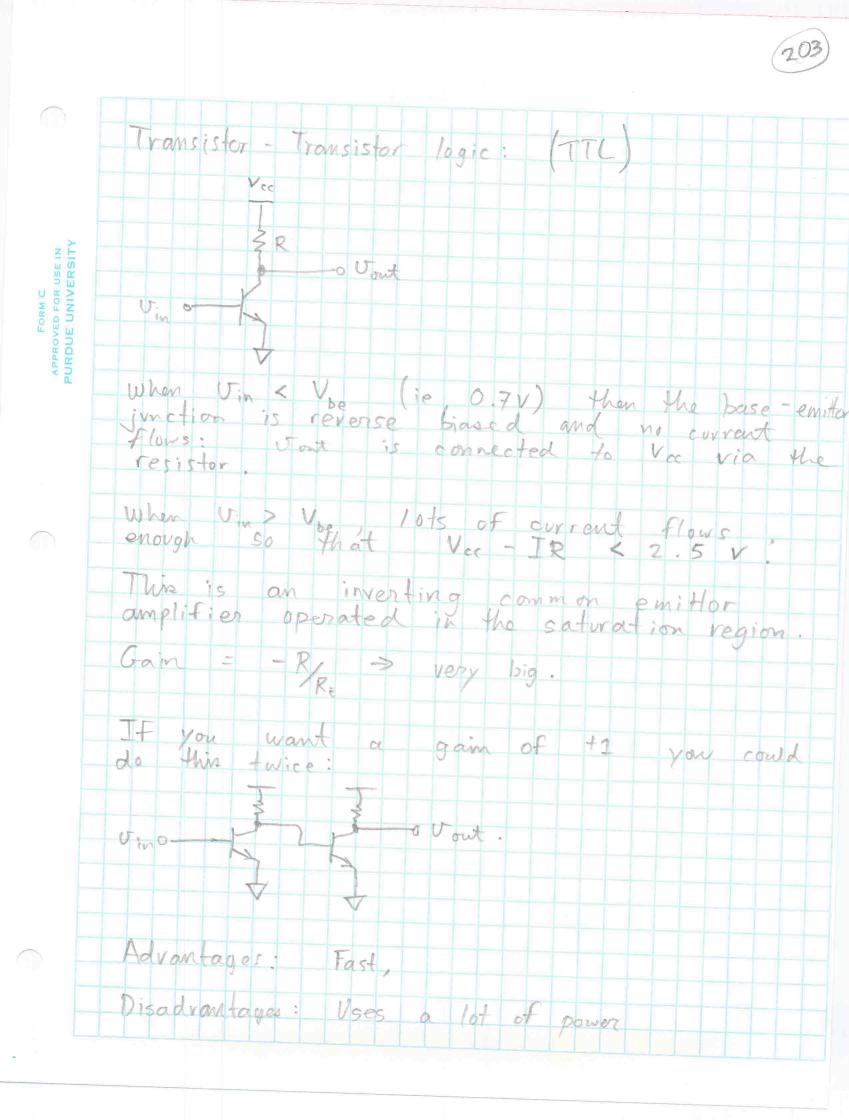 203
FORM C
APPROVED FOR USE IN
PURDUE UNIVERSITY
Transistor - Transistor logic: (TTL)
Vcc
R
Vout
Vin
When Vin < Vbe (ie 0.7V) then the base-emitter
junction is reverse biased and no current
flows. Vout is connected to Vcc via the
resistor.
When Vin > Vbe, lots of current flows,
enough so that Vcc - IR < 2.5 V.
This is an inverting common emittor
amplifier operated in the saturation region.
Gain = -R/RE ⇒ very big.
If you want a gain of +1 you could
do this twice:
Vin
Vout.
Advantages: Fast,
Disadvantages: Uses a lot of power